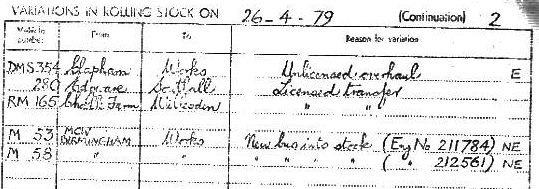 VARIATIONS IN ROLLING STOCK ON 26-4-79 (Continuation) 2
Vehicle number From To Reason for variation
DMS 354 Clapham Works Unlicensed overhaul E
280 Edgware Southall Licensed transfer
RM 165 Chalk Farm Willesden " "
M 53 MCW BIRMINGHAM Works New bus into stock (Eng No 211784) NE
M 58 " " " " " " ( " 212561) NE